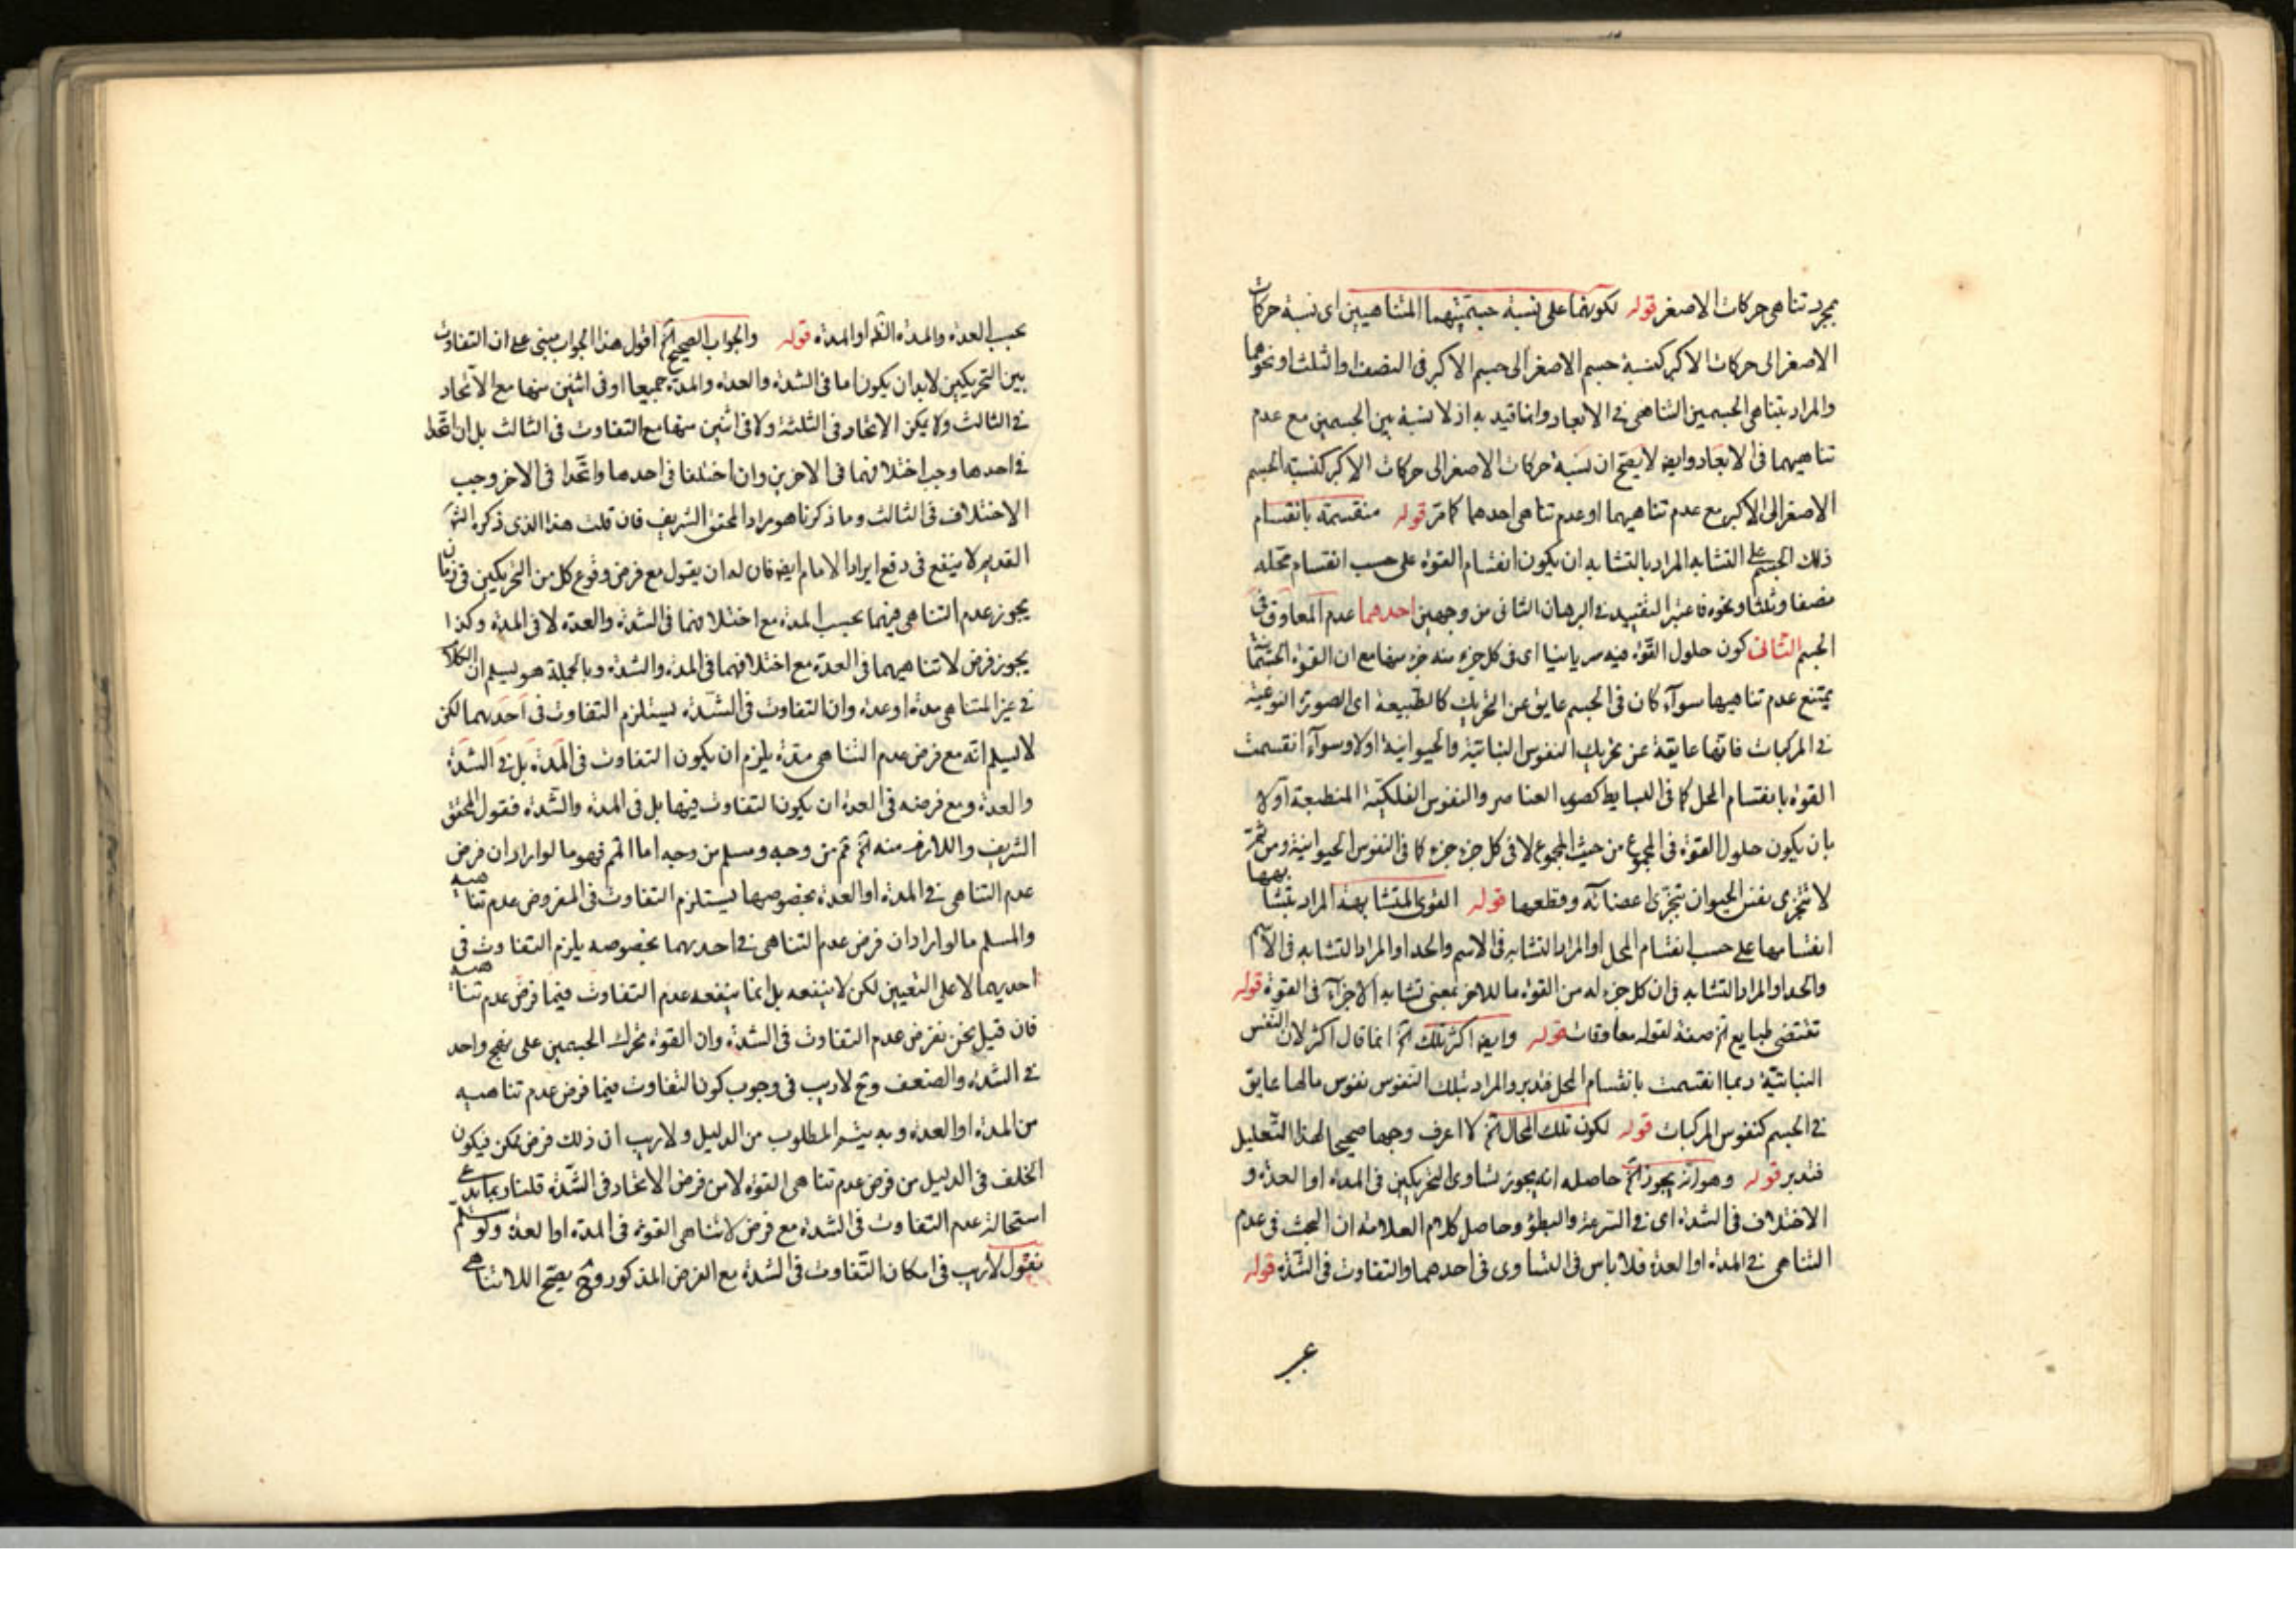 بمجرد تناهى حركات الاصغر قوله لكونهما على نسبة جسميتهما المتناهيين اى نسبة حركات
الاصغر الى حركات الاكبر كنسبة جسم الاصغر الى جسم الاكبر فى النصف والثلث او نحوهما
والمراد بتناهى الجسمين التناهى فى الابعاد وانما قيد به اذ لا نسبة بين الجسمين مع عدم
تناهيهما فى الابعاد وايضا لا يصح ان نسبة حركات الاصغر الى حركات الاكبر كنسبة الجسم
الاصغر الى الاكبر مع عدم تناهيهما او عدم تناهى احدهما كما مر قوله منقسمة بانقسام
ذلك الجسم على التشابه المراد بالتشابه ان يكون انقسام القوة على حسب انقسام محله
نصفا وثلثا ونحوه فاعتبر التقييد فى البرهان الثانى من وجهين احدهما عدم المعاوق فى
الجسم الثانى كون حلول القوة فيه سريانيا اى فى كل جزء منه جزء منها مع ان القوة الجسمانية
يمتنع عدم تناهيها سوآء كان فى الجسم عايق عن التحريك كالطبيعة اى الصورة النوعية
فى المركبات فانها عايقة عن تحريك النفوس النباتية والحيوانية اولا وسوآء انقسمت
القوة بانقسام المحل كما فى البسايط كصور العناصر والنفوس الفلكية المنطبعة اولا
بان يكون حلول القوة فى المجموع من حيث المجموع لا فى كل جزء جزء كما فى النفوس الحيوانية ومن ثمة
لا تتجزى نفس الحيوان بتجزى اعضائه وقطعها قوله القوى المتشابهة المراد بتشابهها
انقسامها على حسب انقسام المحل او المراد التشابه فى الاسم والحد او المراد التشابه فى الاسم
والحد او المراد التشابه فى ان كل جزء له من القوة ما للاخر بمعنى تشابه الاجزآء فى القوة قوله
تقتضى طبايع الخ صفة لقوله معاوقات قوله وايضا اكثر تلك الخ انما قال اكثر لان النفس
النباتية ربما انقسمت بانقسام المحل فتدبر والمراد بتلك النفوس نفوس مالها عايق
فى الجسم كنفوس المركبات قوله لكون تلك المحال الخ لا اعرف وجها صحيحا لهذا التعليل
فتدبر قوله وهو انه يجوز الخ حاصله انه يجوز تساوى التحريكين فى المدة او العدة و
الاختلاف فى الشدة اى فى السرعة والبطؤ وحاصل كلام العلامة ان البحث فى عدم
التناهى فى المدة او العدة فلا باس فى التساوى فى احدهما والتفاوت فى الشدة قوله
بحسب العدة والمدة او المدة قوله والجواب الصحيح الخ اقول هذا الجواب مبنى على ان التفاوت
بين التحريكين لابد ان يكون اما فى الشدة والعدة والمدة جميعا او فى اثنين منها مع الاتحاد
فى الثالث ولا يمكن الاتحاد فى الثلثة ولا فى اثنين منها مع التفاوت فى الثالث بل ان اتحدا
فى احدها وجب اختلافهما فى الاخرين وان اختلفا فى احدها واتحدا فى الاخر وجب
الاختلاف فى الثالث وما ذكرنا هو مراد المحقق الشريف فان قلت هذا الذى ذكره
القديم لا ينفع فى دفع ايراد الامام ايضا فان له ان يقول مع فرض وقوع كل من التحريكين فى زمان
يجوز عدم التناهى فيهما بحسب المدة مع اختلافهما فى الشدة والعدة لا فى المدة وكذا
يجوز فرض لا تناهيهما فى العدة مع اختلافهما فى المدة والشدة وبالجملة هو يسلم ان الكلام
فى غير المتناهى مدة او عدة وان التفاوت فى الشدة يستلزم التفاوت فى احدهما لكن
لا يسلم انه مع فرض عدم التناهى مدة يلزم ان يكون التفاوت فى المدة بل فى الشدة
والعدة ومع فرضه فى العدة ان يكون التفاوت فيها بل فى المدة والشدة فقول المحقق
الشريف واللازم منه الخ من وجه ومسلم من وجه اما فهو ما لو اراد ان فرض
عدم التناهى فى المدة او العدة بخصوصها يستلزم التفاوت فى المفروض عدم تناهيه
والمسلم ما لو اراد ان فرض عدم التناهى فى احديهما بخصوصه يلزم التفاوت فى
احديهما لا على التعيين لكن لا ينفعه بل انما ينفعه عدم التفاوت فيما فرض عدم تناهيه
فان قيل نحن نفرض عدم التفاوت فى الشدة وان القوة تحرك الجسمين على نهج واحد
فى الشدة والضعف وح لا ريب فى وجوب كون التفاوت فيما فرض عدم تناهيه
من المدة او العدة وبه يتم المطلوب من الدليل ولا ريب ان ذلك فرض ممكن فيكون
الخلف فى الدليل من فرض عدم تناهى القوة لا من فرض الاتحاد فى الشدة قلنا ربما
استحالة عدم التفاوت فى الشدة مع فرض لا تناهى القوة فى المدة او العدة ولو سلم
فنقول لا ريب فى امكان التفاوت فى الشدة مع الفرض المذكور وح يصح اللاتناهى